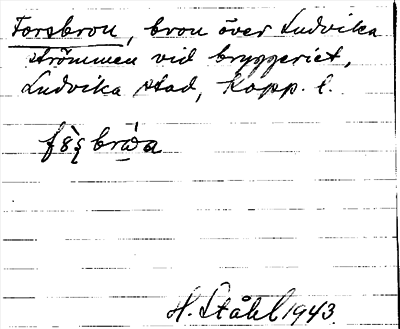 Forsbron, bron över Ludvika
strömmen vid bryggeriet,
Ludvika stad, Kopp. l.
H. Ståhl 1943.